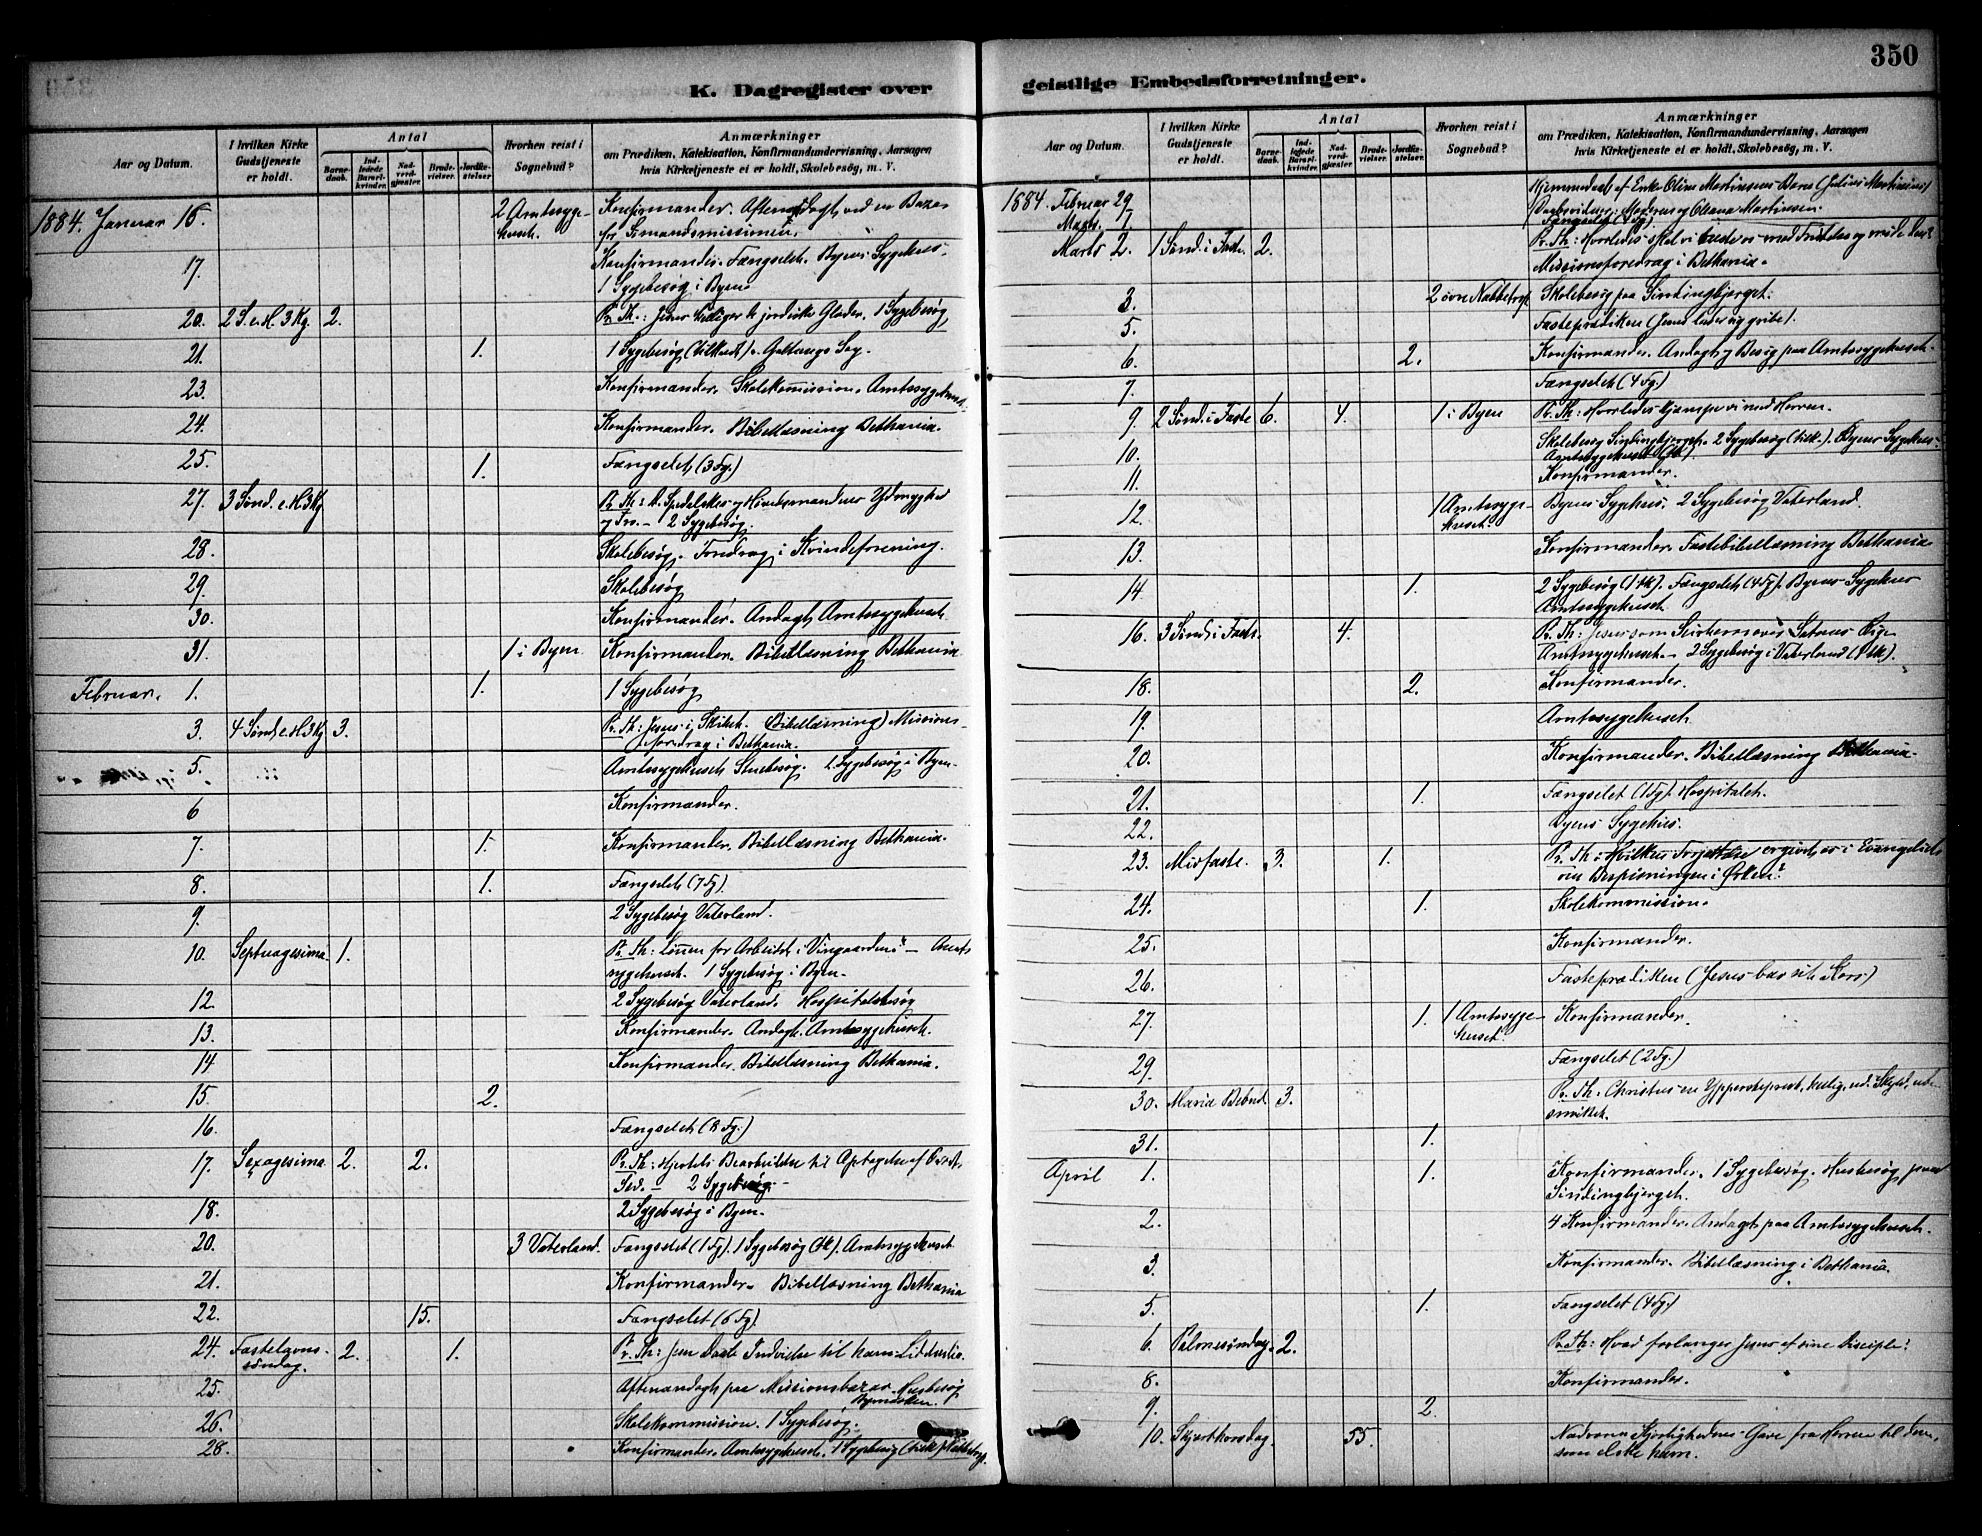 350
K. Dagregister over
geistlige Embedsforretninger.
Aar og Datum.
I hvilken Kirke Gudstjeneste er holdt.
Antal
Barnedaab.
Indledede Barselkvinder.
Nadverdgjester
Brudevielser.
Jordfæstelser
Hvorhen reist i Sognebud?
Anmærkninger
om Prædiken, Katekisation, Konfirmandundervisning, Aarsagen
hvis Kirketjeneste ei er holdt, Skolebesøg, m. V.
1884. Januar 16. 2 Amtssyge- Konfirmander. Aftenandagt ved en Bazar
huset. for Sømandsmissionen.
17. Konfirmander. Fængselet. Byens Sygehus.
1 Sygebesøg i Byen
20. 2 S. e. H. 3 Kg. 2. Pr. Th.: Jesus helliger de jordiske Glæder. 1 Sygebesøg
21. 1. 1 Sygebesøg
23. Konfirmander. Skolekommission. Amtssygehuset.
24. Konfirmander. Bibellæsning Bethania.
25. 1. Fængselet (3 Fg.)
27. 3 Sønd. e. H 3 Kg. Pr. Th.: Spedalskes og Høvedsmandens Ydmyghed
og Tro. — 2 Sygebesøg.
28. Skolebesøg. Foredrag i Kvindeforening.
29. Skolebesøg
30. Konfirmander. Andagt, Amtssygehuset.
31. 1 i Byen Konfirmander. Bibellæsning Bethania.
Februar. 1. 1. 1 Sygebesøg
3. 4 Sønd e. H 3 Kg. 3. Pr. Th: Jesus i Skibet. (Bibellæsning) Missions-
foredrag i Bethania.
5. Amtssygehuset Sygebesøg i Byen.
6 Konfirmander.
7. 1. Konfirmander. Bibellæsning Bethania.
8. 1. Fængselet (7 Fg).
9. 2 Sygebesøg Vaterland.
10. Septuagesima 1. Pr. Th: Lønnen for Arbeidet i Vingaarden — Amts
sygehuset. 1 Sygebesøg i Byen.
12. 2 Sygebesøg Vaterland. Hospitalsbesøg
13. Konfirmander. Andagt. Amtssygehuset.
14 Konfirmander. Bibellæsning Bethania.
15. 2.
16. Fængselet (8 Fg.)
17. Sexagesima 2. 2. Pr. Th: Hjertets Bearbeidelse til Optagelse af
2 Sygebesøg.
18. 2 Sygebesøg i Byen.
20. 3 Vaterland. Fængselet (1 Fg). 1 Sygebesøg (tk). Amtssygehuset.
21. Konfirmander. Bibellæsning Bethania
22. 15. Fængselet (6 Fg).
24. Fastelavns- 2. 1. Pr. Th: Jesu Daab Indvielse til hans Lidelse
søndag.
25. Aftenandagt paa Missionsbazar. Husbesøg
Bymarken.
26. Skolekommission. 1 Sygebesøg.
28. Konfirmander. Amtssygehuset. 1 Sygebesøg
Aar og Datum.
I hvilken Kirke Gudstjeneste er holdt.
Antal
Barnedaab.
Indledede Barselkvinder.
Nadverdgjester
Brudevielser.
Jordfæstelser.
Hvorhen reist i Sognebud?
Anmærkninger
om Prædiken, Katekisation, Konfirmandundervisning, Aarsagen
hvis Kirketjeneste ei er holdt, Skolebesøg, m. V.
1884. Februar 29 Hjemmedaab af Enke Oline Martinsens Barn (Julius Martinius)
Daabsvidner: Moderen og Oleana Martinsen.
Marts. 1. Fængselet (4 Fg)
Marts 2. 1 Sønd. i Faste. 2. Pr. Th: Hvorledes skal vi
Missionsforedrag i Bethania.
3. Skolebesøg paa Sindingbjerget.
5. Fasteprædiken (Jesus lader sig gribe).
6. 2. Konfirmander. Andagt og Besøg paa Amtssygehuset.
7. Fængselet (4 Fg.)
9. 2 Sønd. i Faste 6. 4. 1 i Byen Pr. Th: Hvorledes kjæmpe vi med Herren.
10. Skolebesøg Sindingbjerget. 2 Sygebesøg (tilk.). Byens Sygehus.
Amtssygehuset
11. Konfirmander.
12. 1 Amtssyge- Byens Sygehus. 2 Sygebesøg Vaterland.
huset.
13. Konfirmander. Fastebibellæsning Bethania.
14 1. 2 Sygebesøg (1 tk). Fængselet (4 Fg). Byens Sygehus
Amtssygehuset.
16. 3 Sønd i Faste. 4. Pr. Th: Jesus som Seirherre over Satans Rige
Amtssygehuset. — 2 Sygebesøg i Vaterland
18. 2. Konfirmander.
19. Amtssygehuset.
20. Konfirmander. Bibellæsning Bethania.
21. 1. Fængselet (1 Fg). Hospitalet.
22. Byens Sygehus.
23. Midfaste. 3. 1. Pr. Th: Hvilken Forjættelse er givet os i Evangeliet
om Bespisningen i Ørken?
24. 1. Skolekommission.
25. Konfirmander.
26. Fasteprædiken (Jesus bar sit Kors)
27. 1. 1 Amtssyge- Konfirmander.
huset.
29. Fængselet (2 Fg.)
30. Maria Bebud. 3. Pr. Th: Christus en Ypperstepræst, hellig, ud. Skyld, ube
smittet.
31. 1.
April 1. 1. Konfirmander. 1 Sygebesøg. Husbesøg paa
Sindingbjerget.
2. 4 Konfirmander. Andagt paa Amtssygehuset.
3. Konfirmander. Bibellæsning i Bethania.
5. 1. Fængselet (4 Fg.)
6. Palmesøndag. 2. Pr. Th: Hvad forlanger Jesus af sine Disciple?
8. Konfirmander.
9. 2.
10. Skjærthorsdag. 55. Nadveren Kjærlighedens Gave fra Herren til dem,
som elske ham.